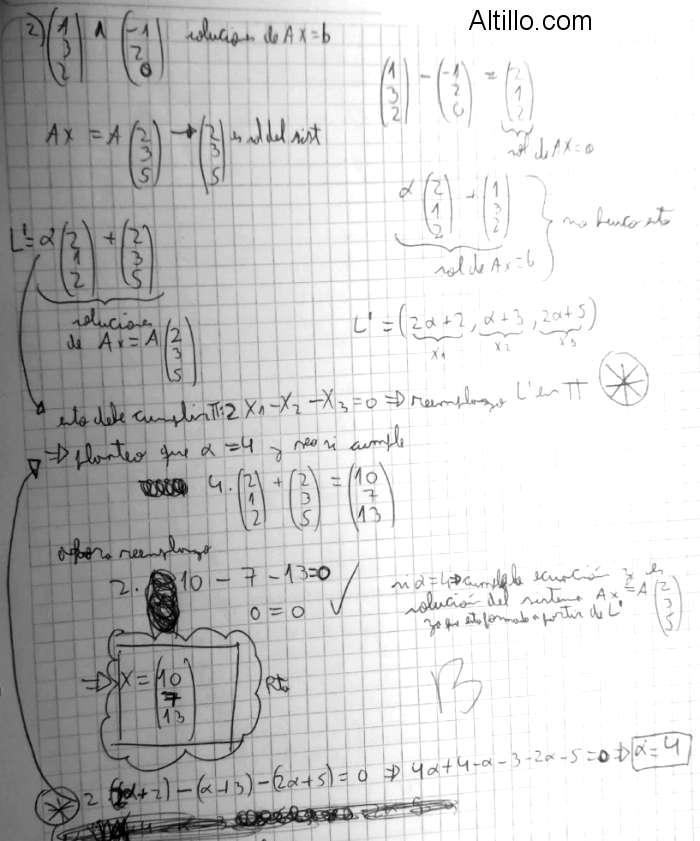 Altillo.com
2) (1 3 2) ∧ (-1 2 0) soluciones de AX=b
(1 3 2) - (-1 2 0) = (2 1 2)
sol de AX=0
AX = A (2 3 5) → (2 3 5) es sol del sist
α (2 1 2) + (1 3 2) } no busco esto
sol de AX=b
L' = α (2 1 2) + (2 3 5)
soluciones
de AX=A (2 3 5)
L' = (2α+2, α+3, 2α+5)
X1 X2 X3
esto debe cumplir π: 2X1-X2-X3=0 ⇒ reemplazo L' en π
⇒ planteo que α=4 y veo si cumple
4. (2 1 2) + (2 3 5) = (10 7 13)
ahora reemplazo
2. 10 - 7 - 13=0
0 = 0 ✓
si α=4 ⇒ cumple la ecuación y es
solución del sistema AX=A (2 3 5)
ya que está formado a partir de L'
⇒ X = (10 7 13) Rta
B
2 (2α+2) - (α+3) - (2α+5) = 0 ⇒ 4α+4-α-3-2α-5=0 ⇒ α=4